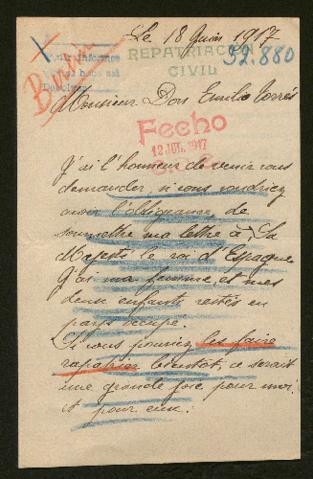 Le 18 Juin 1917
REPATRIACIÓN
CIVIL
52.880
Monsieur Don Emilio Torrés
Fecho
12 JUL. 1917
J'ai l'honneur de venir vous
demander, si vous voudriez
avoir l'obligeance de
soumettre ma lettre à Sa
Majesté le roi d'Espagne
J'ai ma femme et mes
deux enfants restés en
pays occupé.
Si vous pouviez les faire
rapatrier bientôt, ce serait
une grande joie pour moi
et pour eux.